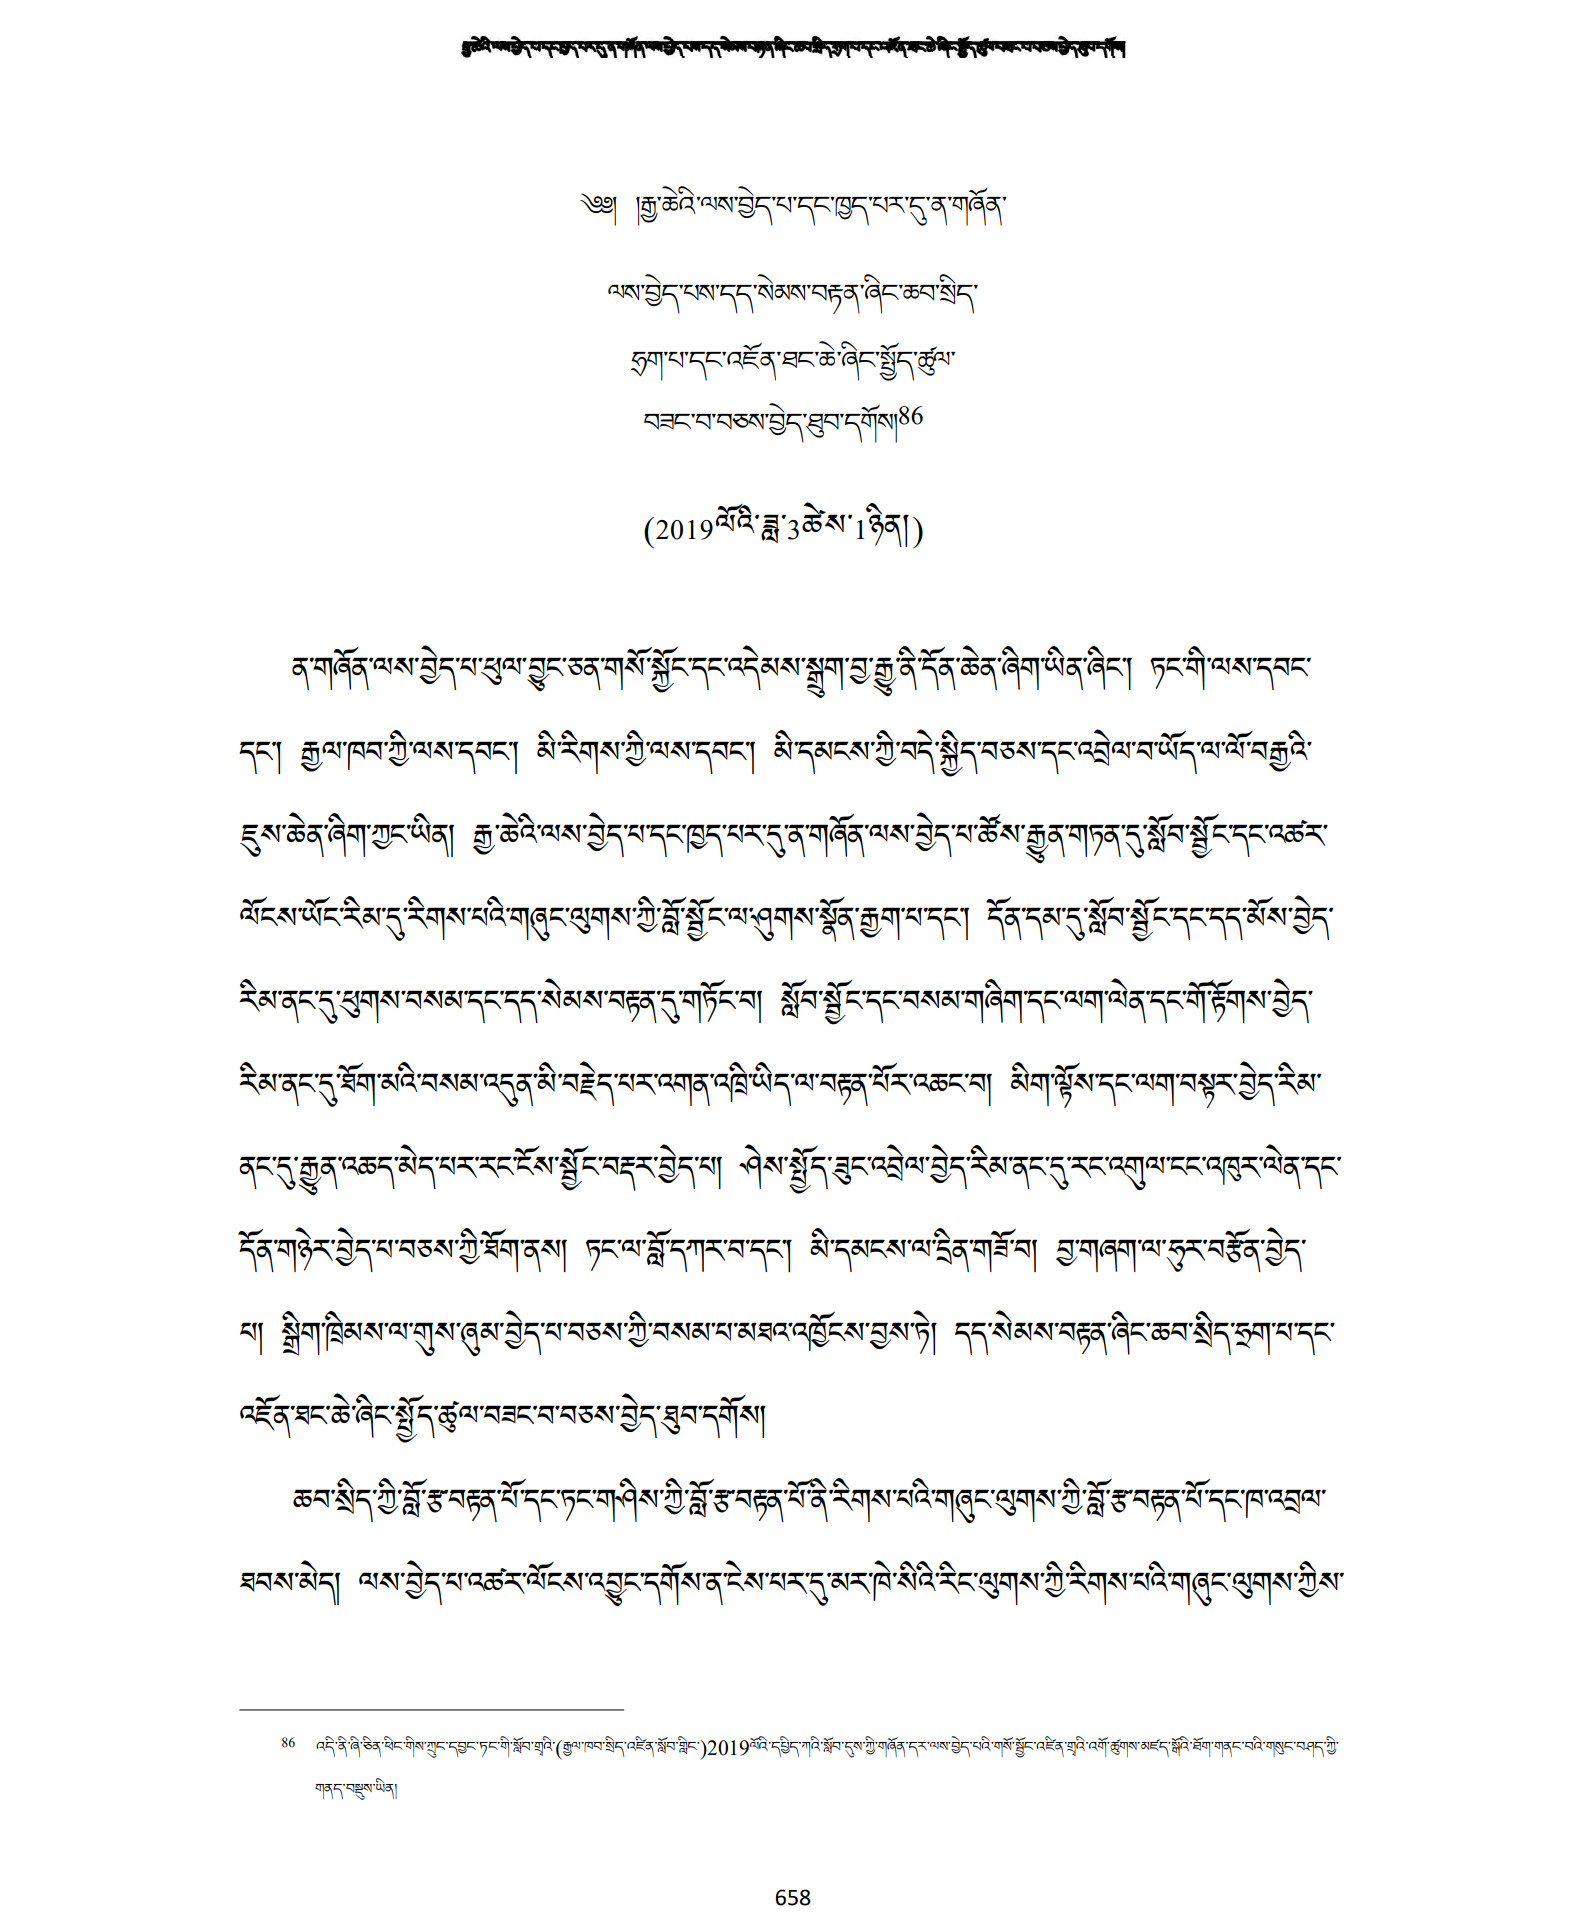 རྒྱ་ཆེའི་ལས་བྱེད་པ་དང་ཁྱད་པར་དུ་ན་གཞོན་ལས་བྱེད་པས་དད་སེམས་བརྟན་ཞིང་ཆབ་སྲིད་ཧྲག་པ་དང་འཇོན་ཐང་ཆེ་ཞིང་སྤྱོད་ཚུལ་བཟང་བ་བཅས་བྱེད་ཐུབ་དགོས།
༄༅། །རྒྱ་ཆེའི་ལས་བྱེད་པ་དང་ཁྱད་པར་དུ་ན་གཞོན་
ལས་བྱེད་པས་དད་སེམས་བརྟན་ཞིང་ཆབ་སྲིད་
ཧྲག་པ་དང་འཇོན་ཐང་ཆེ་ཞིང་སྤྱོད་ཚུལ་
བཟང་བ་བཅས་བྱེད་ཐུབ་དགོས།86
(2019ལོའི་ཟླ་3ཚེས་1ཉིན།)
ན་གཞོན་ལས་བྱེད་པ་ཕུལ་བྱུང་ཅན་གསོ་སྐྱོང་དང་འདེམས་སྒྲུག་བྱ་རྒྱུ་ནི་དོན་ཆེན་ཞིག་ཡིན་ཞིང་། ཏང་གི་ལས་དབང་
དང་། རྒྱལ་ཁབ་ཀྱི་ལས་དབང་། མི་རིགས་ཀྱི་ལས་དབང་། མི་དམངས་ཀྱི་བདེ་སྐྱིད་བཅས་དང་འབྲེལ་བ་ཡོད་ལ་ལོ་བརྒྱའི་
ཇུས་ཆེན་ཞིག་ཀྱང་ཡིན། རྒྱ་ཆེའི་ལས་བྱེད་པ་དང་ཁྱད་པར་དུ་ན་གཞོན་ལས་བྱེད་པ་ཚོས་རྒྱུན་གཏན་དུ་སློབ་སྦྱོང་དང་འཚར་
ལོངས་ཡོང་རིམ་དུ་རིགས་པའི་གཞུང་ལུགས་ཀྱི་བློ་སྦྱོང་ལ་ཤུགས་སྣོན་རྒྱག་པ་དང་། དོན་དམ་དུ་སློབ་སྦྱོང་དང་དད་མོས་བྱེད་
རིམ་ནང་དུ་ཕུགས་བསམ་དང་དད་སེམས་བརྟན་དུ་གཏོང་བ། སློབ་སྦྱོང་དང་བསམ་གཞིག་དང་ལག་ལེན་དང་གོ་རྟོགས་བྱེད་
རིམ་ནང་དུ་ཐོག་མའི་བསམ་འདུན་མི་བརྗེད་པར་འགན་འཁྲི་ཡིད་ལ་བརྟན་པོར་འཆང་བ། མིག་ལྟོས་དང་ལག་བསྟར་བྱེད་རིམ་
ནང་དུ་རྒྱུན་འཆད་མེད་པར་རང་ངོས་སྦྱོང་བརྡར་བྱེད་པ། ཤེས་སྤྱོད་ཟུང་འབྲེལ་བྱེད་རིམ་ནང་དུ་རང་འགུལ་ངང་འཁུར་ལེན་དང་
དོན་གཉེར་བྱེད་པ་བཅས་ཀྱི་ཐོག་ནས། ཏང་ལ་བློ་དཀར་བ་དང་། མི་དམངས་ལ་དྲིན་གཟོ་བ། བྱ་གཞག་ལ་ཧུར་བརྩོན་བྱེད་
པ། སྒྲིག་ཁྲིམས་ལ་གུས་ཞུམ་བྱེད་པ་བཅས་ཀྱི་བསམ་པ་མཐའ་འཁྱོངས་བྱས་ཏེ། དད་སེམས་བརྟན་ཞིང་ཆབ་སྲིད་ཧྲག་པ་དང་
འཇོན་ཐང་ཆེ་ཞིང་སྤྱོད་ཚུལ་བཟང་བ་བཅས་བྱེད་ཐུབ་དགོས།
ཆབ་སྲིད་ཀྱི་བློ་རྩ་བརྟན་པོ་དང་ཏང་གཤིས་ཀྱི་བློ་རྩ་བརྟན་པོ་ནི་རིགས་པའི་གཞུང་ལུགས་ཀྱི་བློ་རྩ་བརྟན་པོ་དང་ཁ་འབྲལ་
ཐབས་མེད། ལས་བྱེད་པ་འཚར་ལོངས་འབྱུང་དགོས་ན་ངེས་པར་དུ་མར་ཁེ་སིའི་རིང་ལུགས་ཀྱི་རིགས་པའི་གཞུང་ལུགས་ཀྱིས་
86 འདི་ནི་ཞི་ཅིན་ཕིང་གིས་ཀྲུང་དབྱང་ཏང་གི་སློབ་གྲྭའི་(རྒྱལ་ཁབ་སྲིད་འཛིན་སློབ་གླིང་)2019ལོའི་དཔྱིད་ཀའི་སློབ་དུས་ཀྱི་གཞོན་དར་ལས་བྱེད་པའི་གསོ་སྦྱོང་འཛིན་གྲྭའི་འགོ་ཚུགས་མཛད་སྒོའི་ཐོག་གནང་བའི་གསུང་བཤད་ཀྱི་
གནད་བསྡུས་ཡིན།
658